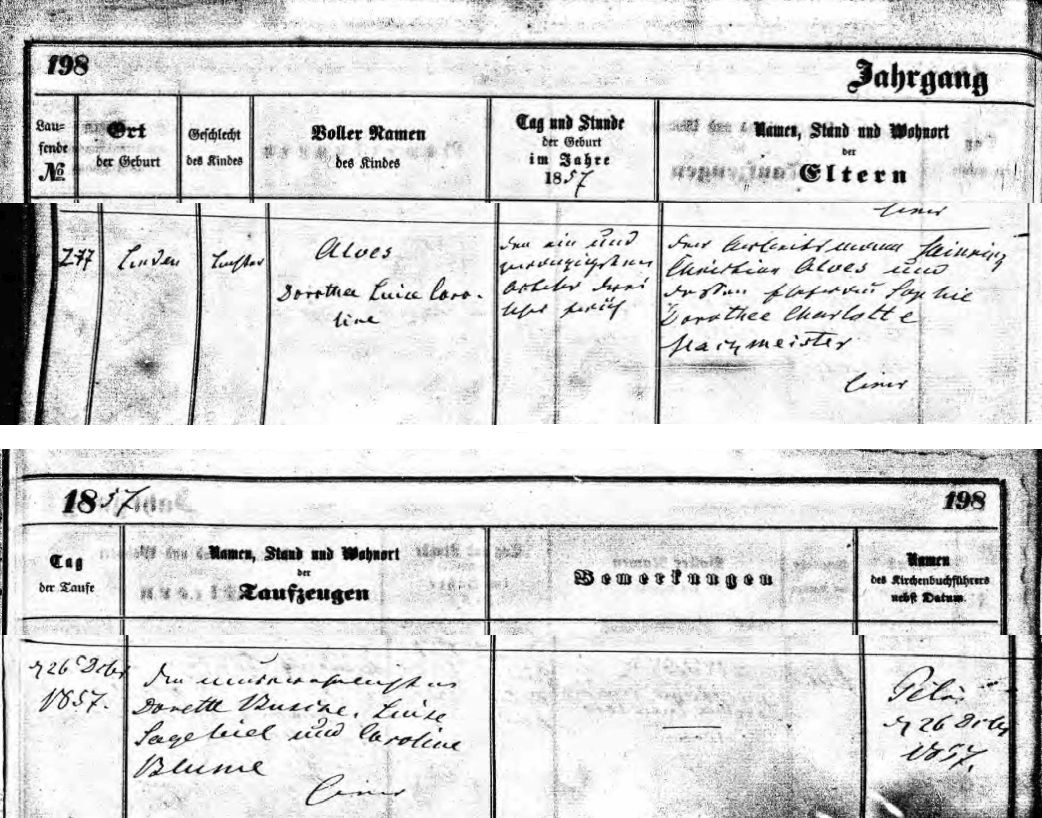 198
Jahrgang
Lau=
fende
No
Ort
der Geburt
Geschlecht
des Kindes
Voller Namen
des Kindes
Tag und Stunde
der Geburt
im Jahre
1857
Namen, Stand und Wohnort
der
Eltern
277
Linden
Tochter
Alves
Dorothee Luise Caro-
line
den ein und
zwanzigsten
October drei
Uhr früh
Der Arbeitsmann Heinrich
Christian Alves und
dessen Ehefrau Sophie
Dorothee Charlotte
Hachmeister
1857
198
Tag
der Taufe
Namen, Stand und Wohnort
der
Taufzeugen
Bemerkungen
Namen
des Kirchenbuchführers
nebst Datum.
26
1857.
Die unverehelichten
Dorette Busche, Luise
Sagebiel und Caroline
Blume
26
1857.